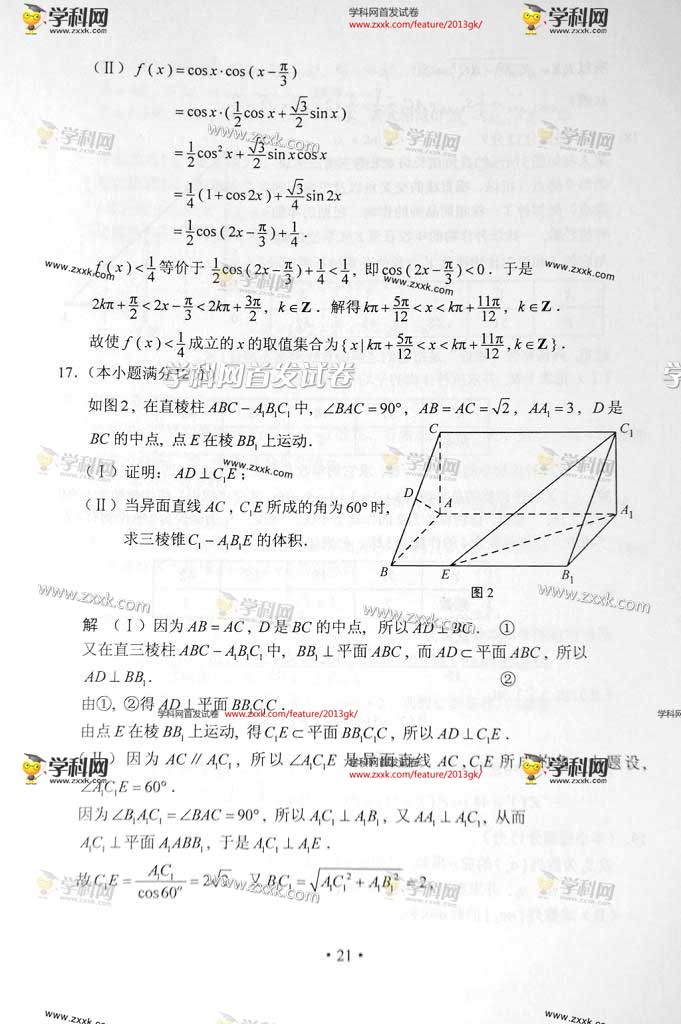 学科网首发试卷
www.zxxk.com/feature/2013gk/
(Ⅱ) f(x)=cosx·cos(x-π/3)
=cosx·(1/2 cosx+√3/2 sinx)
=1/2 cos²x+√3/2 sinxcosx
=1/4(1+cos2x)+√3/4 sin2x
=1/2 cos(2x-π/3)+1/4.
f(x)<1/4等价于 1/2 cos(2x-π/3)+1/4<1/4, 即cos(2x-π/3)<0. 于是
2kπ+π/2<2x-π/3<2kπ+3π/2, k∈Z. 解得kπ+5π/12<x<kπ+11π/12, k∈Z.
故使f(x)<1/4成立的x的取值集合为{x|kπ+5π/12<x<kπ+11π/12, k∈Z}.
17.(本小题满分12分)
学科网首发试卷
如图2, 在直棱柱ABC-A₁B₁C₁中, ∠BAC=90°, AB=AC=√2, AA₁=3, D是
BC的中点, 点E在棱BB₁上运动.
(Ⅰ) 证明: AD⊥C₁E;
(Ⅱ) 当异面直线AC, C₁E所成的角为60°时,
求三棱锥C₁-A₁B₁E的体积.
C
C₁
D
A
A₁
B
E
B₁
图2
解 (Ⅰ) 因为AB=AC, D是BC的中点, 所以AD⊥BC. ①
又在直三棱柱ABC-A₁B₁C₁中, BB₁⊥平面ABC, 而AD⊂平面ABC, 所以
AD⊥BB₁. ②
由①, ②得AD⊥平面BB₁C₁C.
由点E在棱BB₁上运动, 得C₁E⊂平面BB₁C₁C, 所以AD⊥C₁E.
(Ⅱ) 因为AC∥A₁C₁, 所以∠A₁C₁E是异面直线AC, C₁E所成的角, 由题设,
∠A₁C₁E=60°.
因为∠B₁A₁C₁=∠BAC=90°, 所以A₁C₁⊥A₁B₁, 又AA₁⊥A₁C₁, 从而
A₁C₁⊥平面A₁ABB₁, 于是A₁C₁⊥A₁E.
故C₁E=A₁C₁/cos60°=2√2, 又B₁C₁=√(A₁C₁²+A₁B₁²)=2,
·21·
学科网
zxxk.com
www.zxxk.com